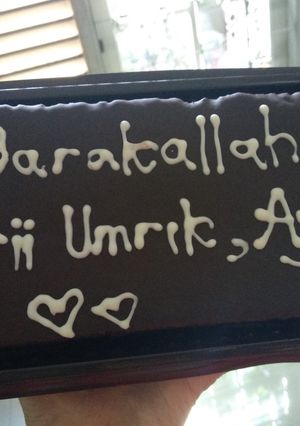 Barakallah
fii Umrik, Ay